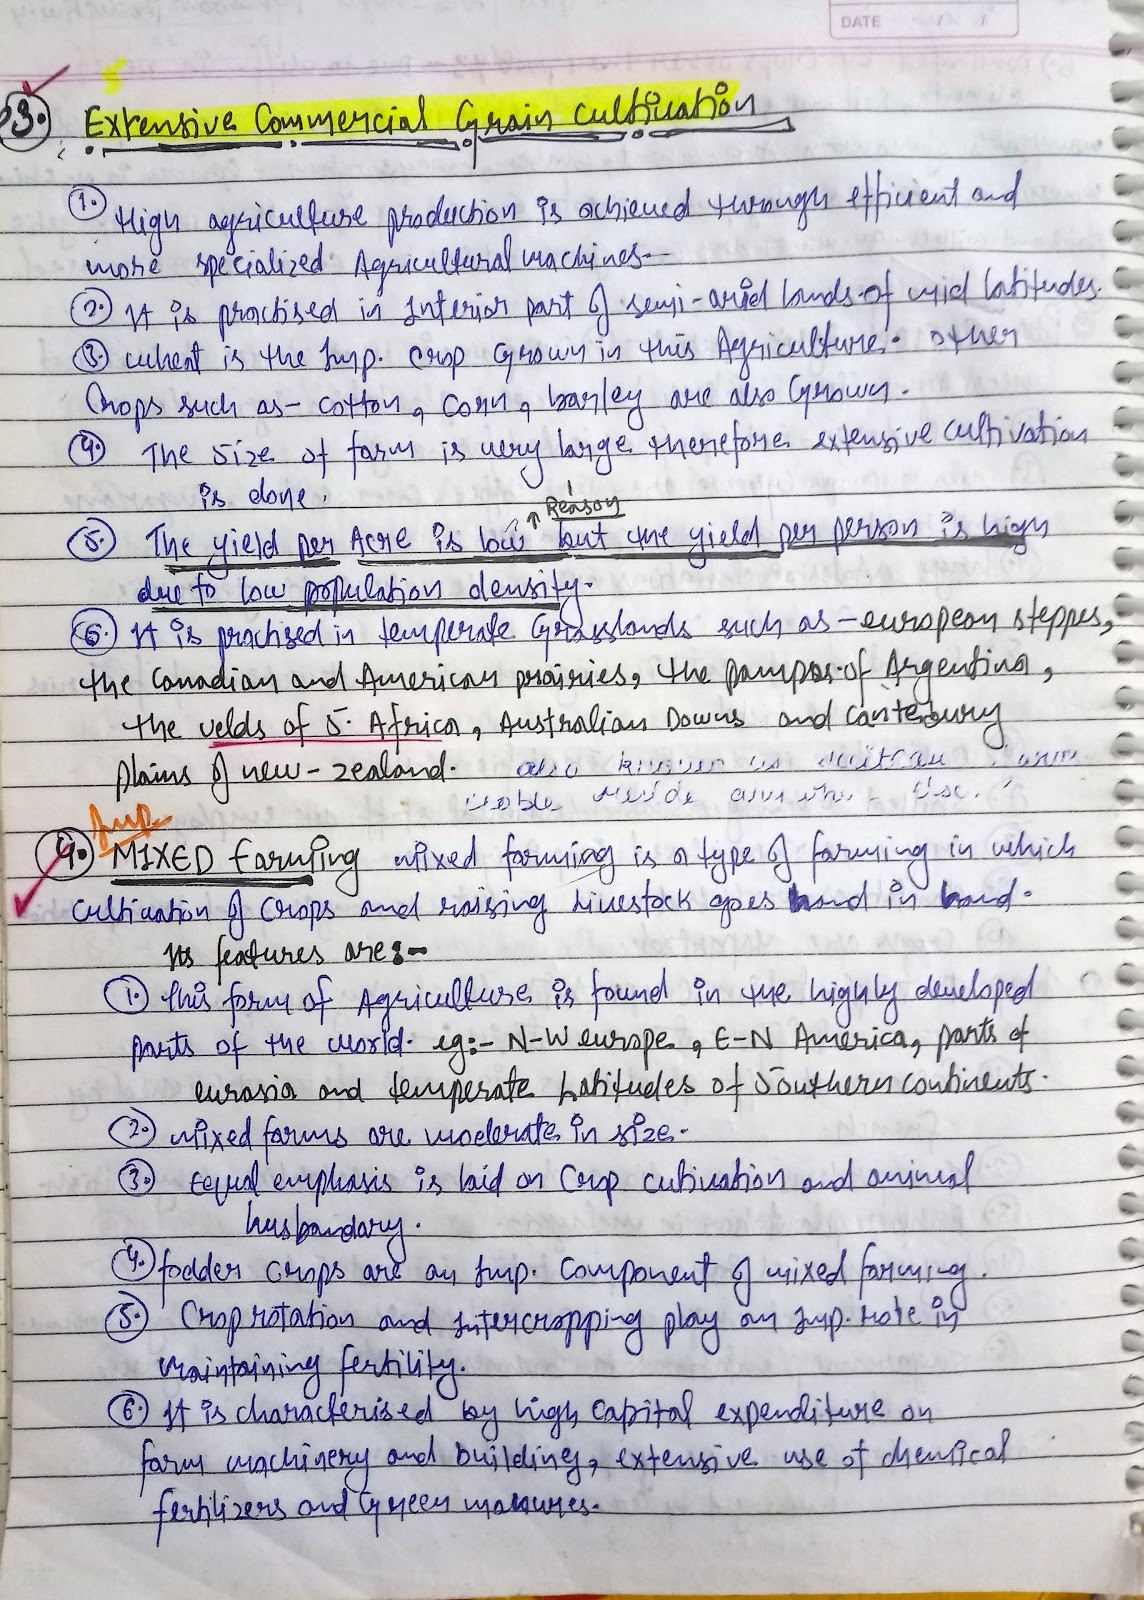 DATE
3. Extensive Commercial Grain Cultivation
1. High agriculture production is achieved through efficient and
more specialized Agricultural machines—
2. It is practised in Interior part of semi-arid lands of mid latitudes.
3. wheat is the Imp. crop Grown in this Agriculture. other
Crops such as - cotton, Corn, barley are also Grown.
4. The Size of farm is very large therefore extensive cultivation
is done.
Reason
5. The yield per Acre is low but the yield per person is high
due to low population density.
6. It is practised in temperate Grasslands such as - european steppes,
the Canadian and American prairies, the pampas of Argentina,
the velds of S. Africa, Australian Downs and Canterbury
plains of new-zealand. also known as
Imp
4. MIXED farming mixed farming is a type of farming in which
cultivation of crops and raising livestock goes hand in hand.
Its features are:-
1. this form of Agriculture is found in the highly developed
parts of the world. eg:- N-W europe, E-N America, parts of
eurasia and temperate Latitudes of Southern continents.
2. mixed farms are moderate in size.
3. Equal emphasis is laid on Crop cultivation and animal
husbandary.
4. fodder crops are an Imp. component of mixed farming.
5. Crop rotation and Intercropping play an Imp. role in
maintaining fertility.
6. It is characterised by high capital expenditure on
farm machinery and building, extensive use of chemical
fertilizers and Green manures.